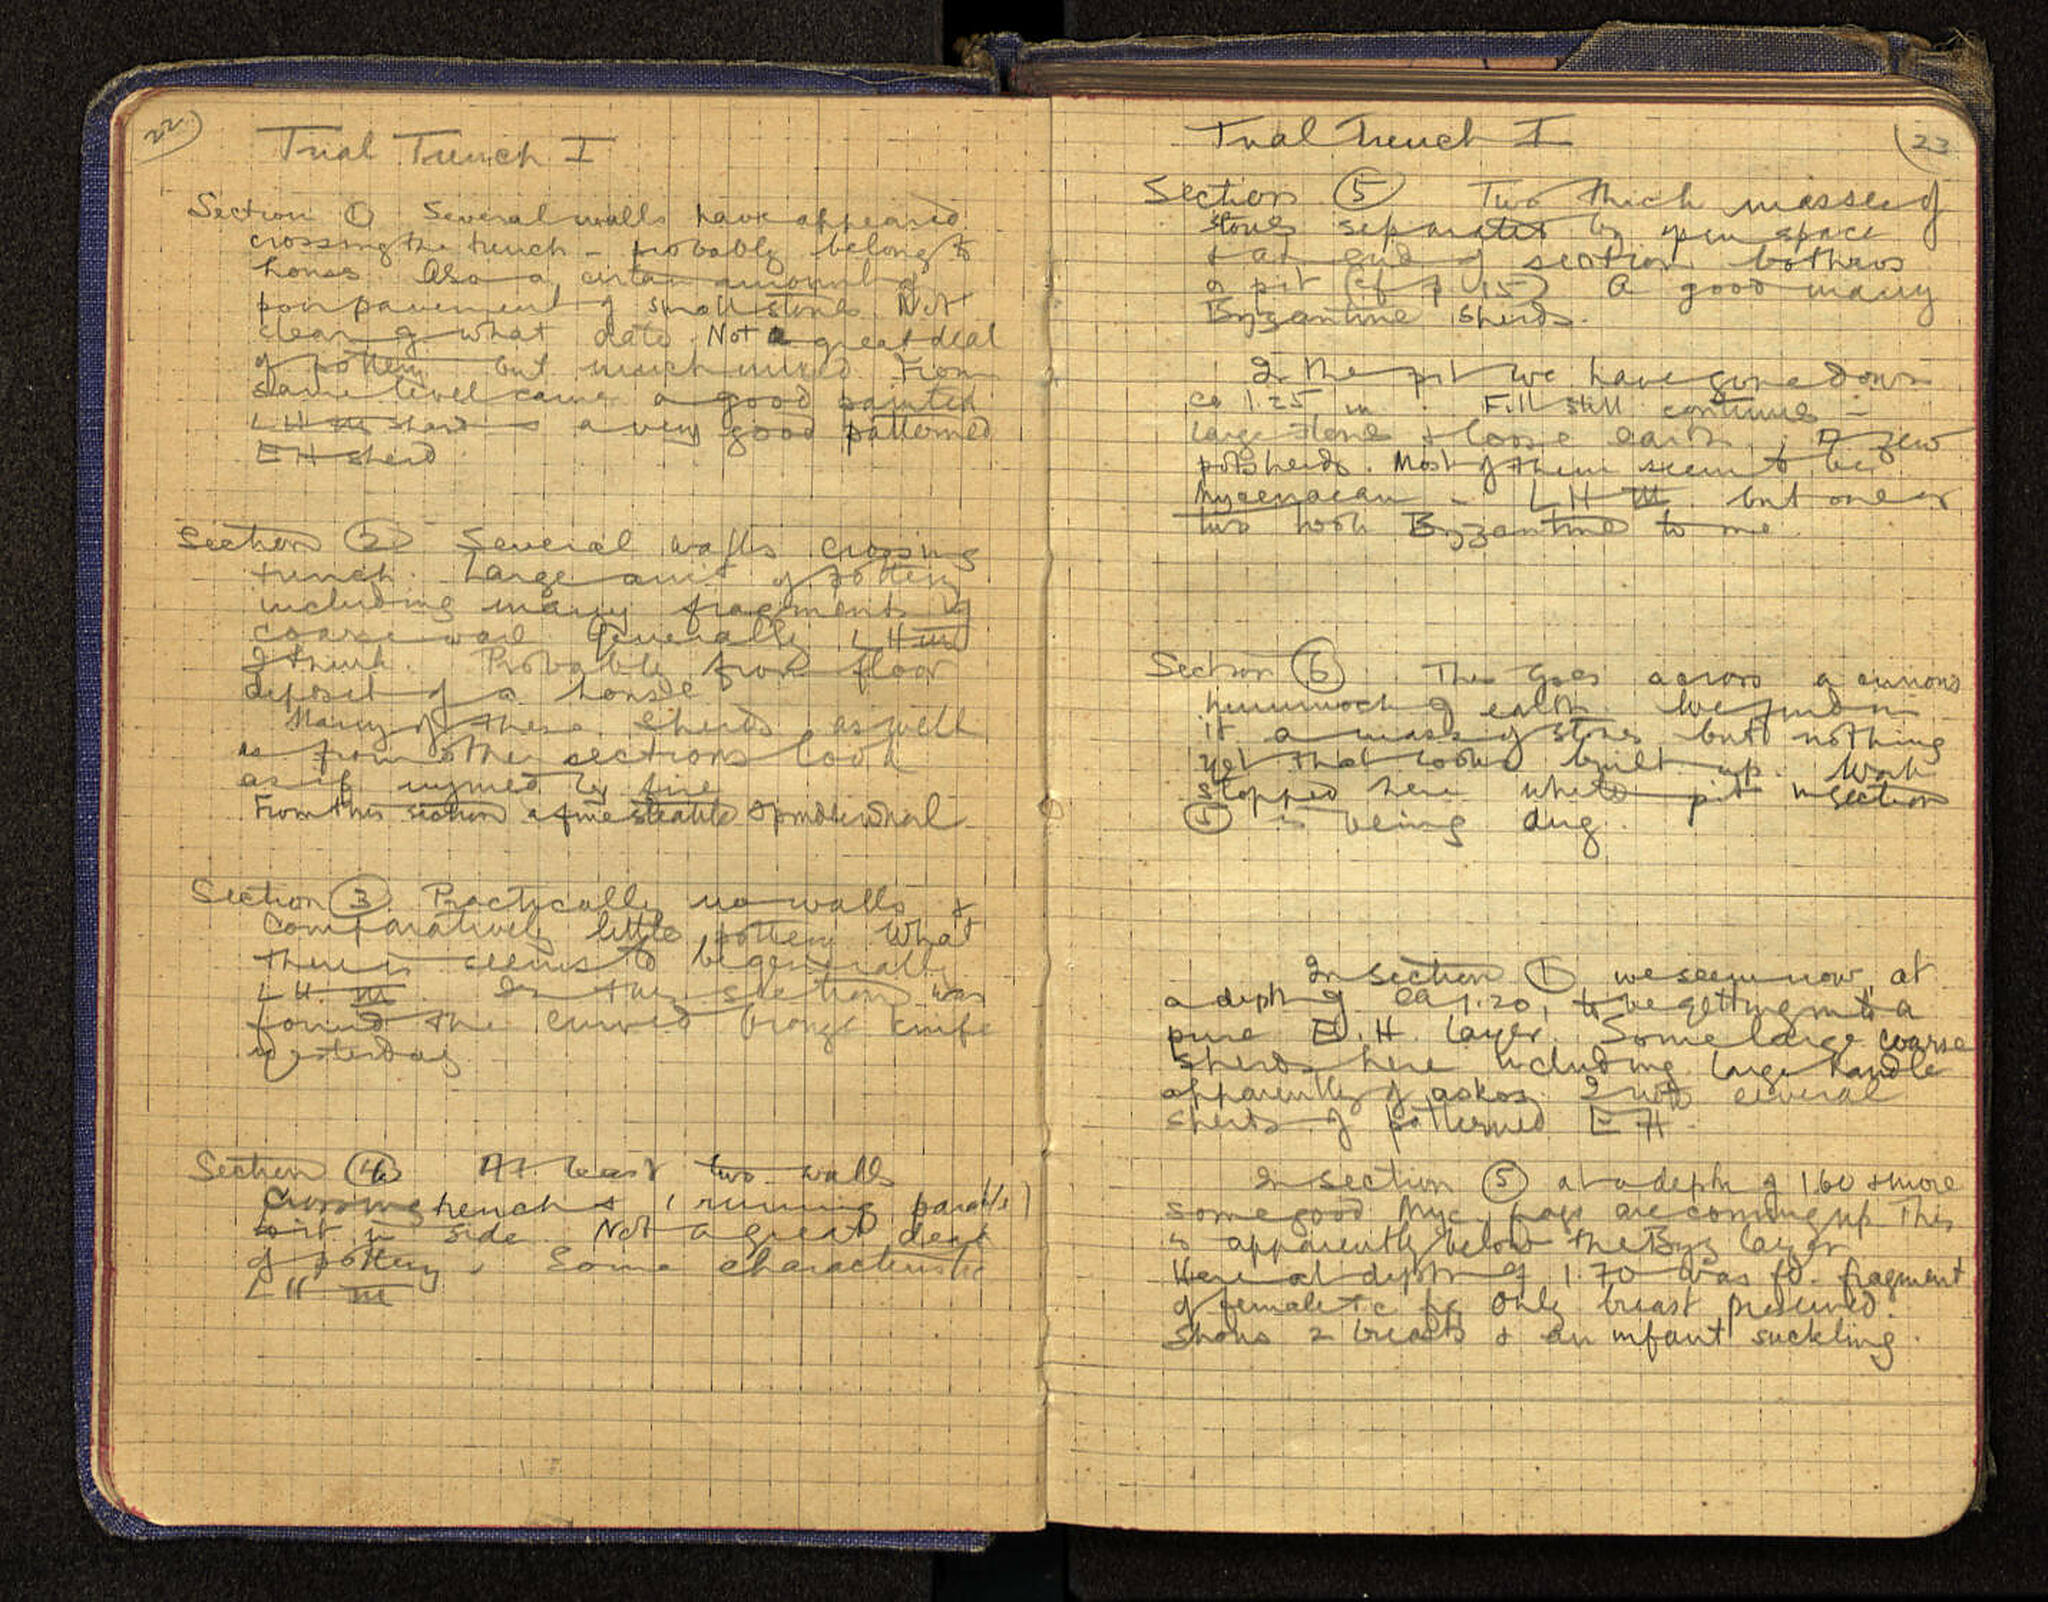 22
Trial Trench I
Section 1 Several walls have appeared
crossing the trench – probably belong to
house Also a certain amount of
poor pavement of small stones. Not
clear of what date. Not a great deal
of pottery but much mixed From
same level came a good painted
LH III sherd & a very good patterned
EH sherd
Section 2 Several walls crossing
trench. Large amt of pottery
including many fragments of
coarse ware Generally LH III
I think. Probably from floor
deposit of a house
Many of these sherds as well
as from other sections look
as if injured by fire
From this section a fine steatite spindlewhorl
Section 3 Practically no walls &
comparatively little pottery What
there is seems to be generally
LH III. In this section was
found the curved bronze knife
yesterday
Section 4 At least two walls
crossing trench & 1 running parallel
to it in side Not a great deal
of pottery. Some characteristic
LH III
23
Trial Trench I
Section 5 Two thick masses of
stones separated by open space
& at end of section
a pit (cf p 15) A good many
Byzantine sherds.
In the pit we have gone down
ca 1.25 m. Fill still continues –
large stones & loose earth. A few
potsherds. Most of them seem to be
Mycenaean – LH III but one or
two look Byzantine to me
Section 6 This goes across a curious
hummock of earth. We find in
it a mass of stones but nothing
yet that looks built up. Work
stopped here while pit in section
5 is being dug.
In section 1 we seem now, at
a depth of ca 1.20, to be getting into a
pure E.H. layer. Some large coarse
sherds here including large handle
apparently of askos. I note several
sherds of patterned EH.
In section 5 at a depth of 1.60 & more
some good Myc. frags are coming up This
is apparently below the Byz layer
Here at depth of 1.70 was fd. fragment
of female tc fig Only breast preserved.
Shows 2 breasts & an infant suckling.